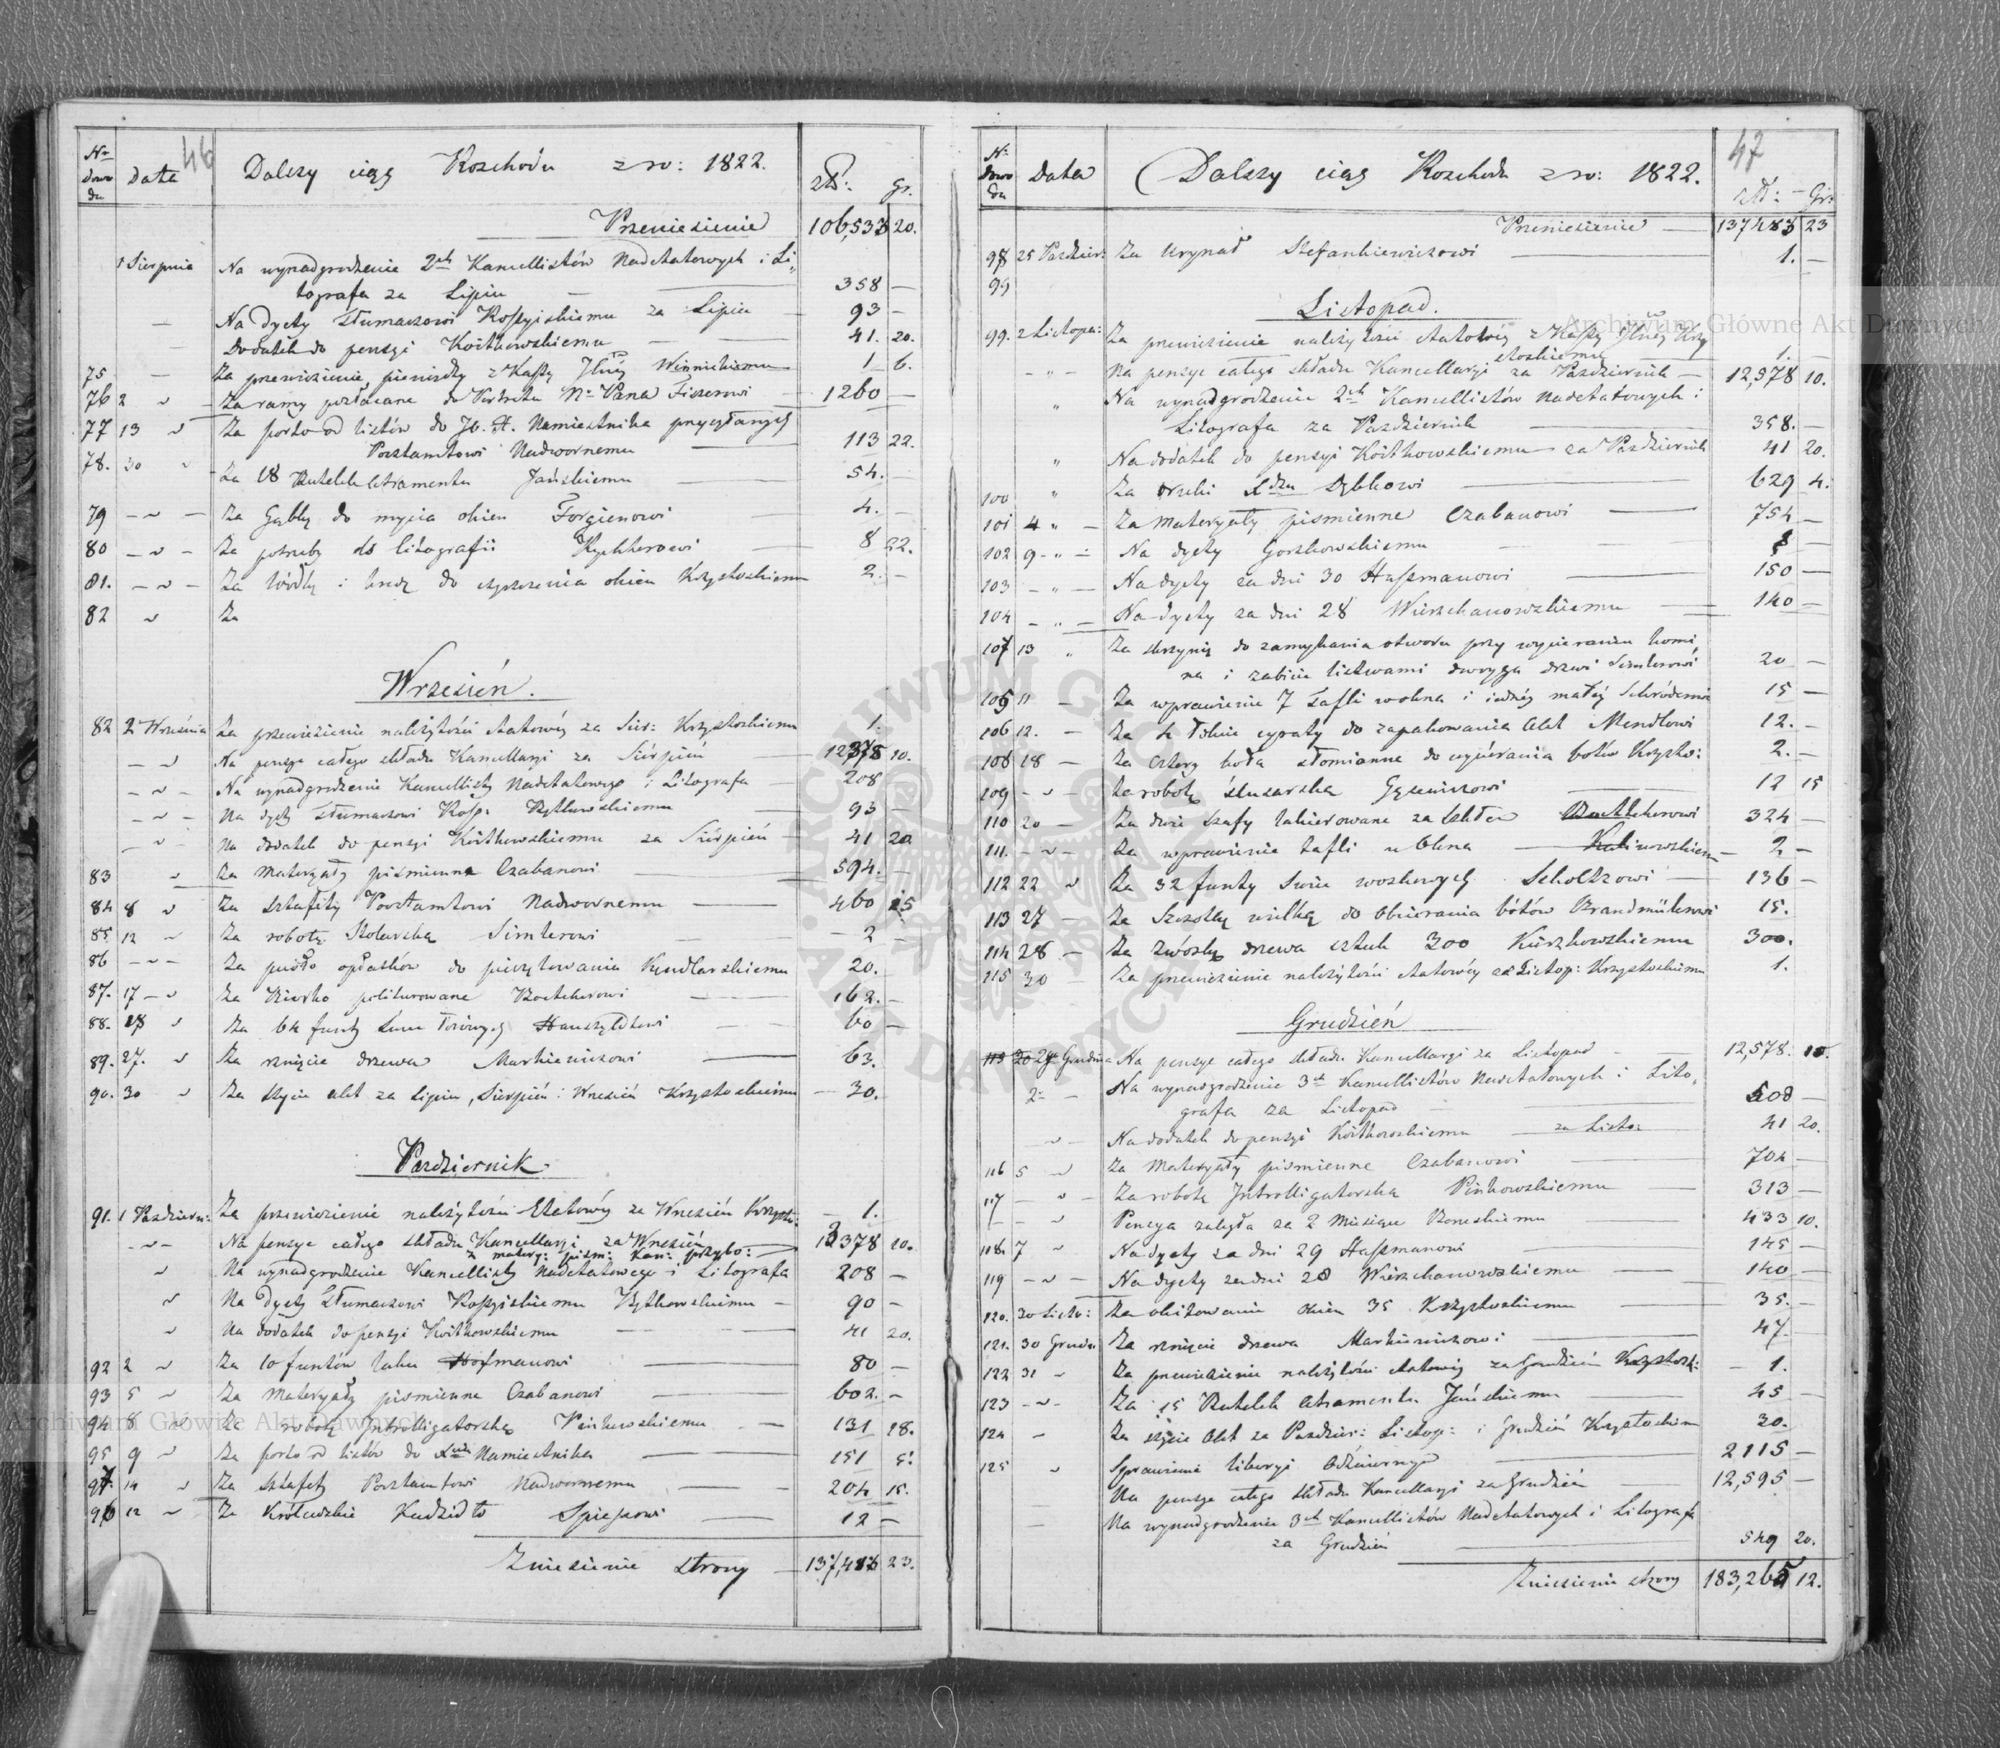 46
Nr Dowodu Data Dalszy ciąg Rozchodu z r: 1822. złł: gr.
Przeniesienie 106,533 20.
1 Sierpnia Na wynadgrodzenie 2ch Kancellistów Nadetatowych i Li-
tografa za Lipiec — 358 —
— Na dyety Tłumaczowi Rossyiskiemu za Lipiec 93 —
Dodatek do pensyi Koitkowskiemu 41. 20.
75 — Za przewiezienie pieniędzy z Kassy Winnickiemu 1 6.
76 2 Za ramy pozłacane do Portretu Pana Fiszerowi 1260 —
77 13 Za porto od listów do Namiestnika przysłanych
Pocztamtowi Nadwornemu 113 22.
78. 30 Za 18 Butelek atramentu Jańskiemu 54. —
79 Za Gąbkę do mycia okien 4. —
80 Za potrzeby do litografii 8 22.
81. Za wódkę i kredę do czyszczenia okien Krzystoskiemu 2. —
82 Za
Wrzesień.
82 2 Września Za przewiezienie należytości etatowéy za Sier: Krzystoskiemu 1.
Na pensye całego składu Kancellaryi za Sierpień 12378 10.
Na wynadgrodzenie Kancellisty Nadetatowego i Litografa 208
Na dyety Tłumaczowi Ross. Rytkowskiemu 93 —
Na dodatek do pensyi Koitkowskiemu za Sierpień 41 20
83 Za materyały piśmienne Czabanowi 594. —
84 8 Za sztafety Pocztamtowi Nadwornemu 460 25
85 12 Za robotę Stolarską Simlerowi 2 —
86 Za pudło opłatków do pieczętowania Kundlarskiemu 20.
87. 17 Za Biurko politurowane Boetcherowi 162. —
88. 18 Za 64 funty Świec Łoiowych 60 —
89. 27. Za rznięcie drzewa Markiewiczowi 63.
90. 30 Za szycie akt za Lipiec, Sierpień i Wrzesień Krzystoskiemu 30.
Pazdziernik.
91. 1 Pazdziern: Za przewiezienie należytości Etatowéy za Wrzesień Krzysto: 1.
Na pensye całego składu Kancellaryi za Wrzesień
z matery: piśm: Kan: przybo: 12378 20.
Na wynadgrodzenie Kancellisty Nadetatowego i Litografa 208 —
Na Dyety Tłumaczowi Rossyiskiemu Rytkowskiemu 90 —
Na dodatek do pensyi Koitkowskiemu 41 20.
92 2 Za 10 funtów laku Hofmanowi 80 —
93 5 Za Materyały piśmienne Czabanowi 602. —
94 8 Za robotę Introlligatorską Pińkowskiemu 131 18.
95 9 Za porto od listów do Namiestnika 151 5.
97. 14 Za sztafety Pocztamtowi Nadwornemu 204 15.
96 12 Za Królewskie Kadzidło Spiesowi 12 —
Zniesienie strony 137,483 23.
47
Nr Dowodu Data Dalszy ciąg Rozchodu z r: 1822. złł: Gr:
Przeniesienie 137483 23
98 25 Pazdzier: Za Urynał Stefankiewiczowi 1. —
99
Listopad.
99. 2 Listopa: Za przewiezienie należytości etatowéy z Kassy Krzy
stoskiemu 1.
Na pensye całego składu Kancellaryi za Pazdziernik 12,578 10.
Na wynadgrodzenie 2ch Kancellistów Nadetatowych i
Litografa za Pazdziernik 358. —
Na dodatek do pensyi Koitkowskiemu za Pazdziernik 41 20.
100 Za druki Xdzu Dąbkowi 629 4.
101 4 Za Materyały piśmienne Czabanowi 754 —
102 9 Na dyety Gorzkowskiemu —
103 Na dyety za dni 30 Hassmanowi 150 —
104 Na dyety za dni 28 Wierzchanowskiemu 140 —
107 13 Za skrzynię do zamykania otworu przy wycieraniu komi,
na i zabicie listwami dwoyga drzwi Simlerowi 20 —
105 11 Za wprawienie 7 Tafli w okna i iednéy małéy 15 —
106 12. Za 4 łokcie ceraty do zapakowania akt Mendlowi 12. —
108 18 Za cztery koła słomianne do wycierania botów Krzysto: 2. —
109 Za robotę ślusarską Gąseuiczowi 12 15
110 20 Za dwie szafy lakierowane ze szkłem Boettcherowi 324 —
111. Za wprawienie tafli w okna Kalinowskiemu 2 —
112 22 Za 32 funty Świec woskowych Scholtzowi 136 —
113 27 Za Szczotkę wielką do obcierania bótów Brandmülerowi 15.
114 28 Za zwózkę drzewa sztuk 300 Kierzkowskiemu 300.
115 30 Za przewiezienie należytości etatowéy za Listop: Krzystoskiemu 1.
Grudzień
2go Grudnia Na pensye całego składu Kancellaryi za Listopad 12,578. 10.
2 Na wynadgrodzenie 3ch Kancellistów Nadetatowych i Lito,
grafa za Listopad 508 —
Na dodatek do pensyi Koitkowskiemu za Listo: 41 20.
116 5 Za Materyały piśmienne Czabanowi 704 —
117 Za robotę Introlligatorską Pińkowskiemu 313 —
Pensya zaległa za 2 Miesiące 433 10.
118. 7 Na dyety za dni 29 Hassmanowi 145 —
119 Na dyety za dni 28 Wierzchanowskiemu 140 —
120. 30 Listo: Za okitowanie okien 35 Krzystoskiemu 35. —
121. 30 Grudn Za rznięcie drzewa Markiewiczowi 47
122 31 Za przewiezienie należytości etatowéy za Grudzień Krzystosk: 1.
123 Za 15 Butelek Atramentu Jańskiemu 45 —
124 Za szycie Akt za Pazdzier: Listop: i Grudzień Krzystoskiem 30.
125 Sprawienie liberyi Odźwiernego 2115 —
Na pensye całego składu Kancellaryi za Grudzień 12,595 —
Na wynadgrodzenie 3ch Kancellistów Nadetatowych i Litografa
za Grudzień 549 20.
Zniesienie strony 183,265 12.
Archiwum Główne Akt Dawnych
Archiwum Główne Akt Dawnych
ARCHIWUM GŁÓWNE AKT DAWNYCH